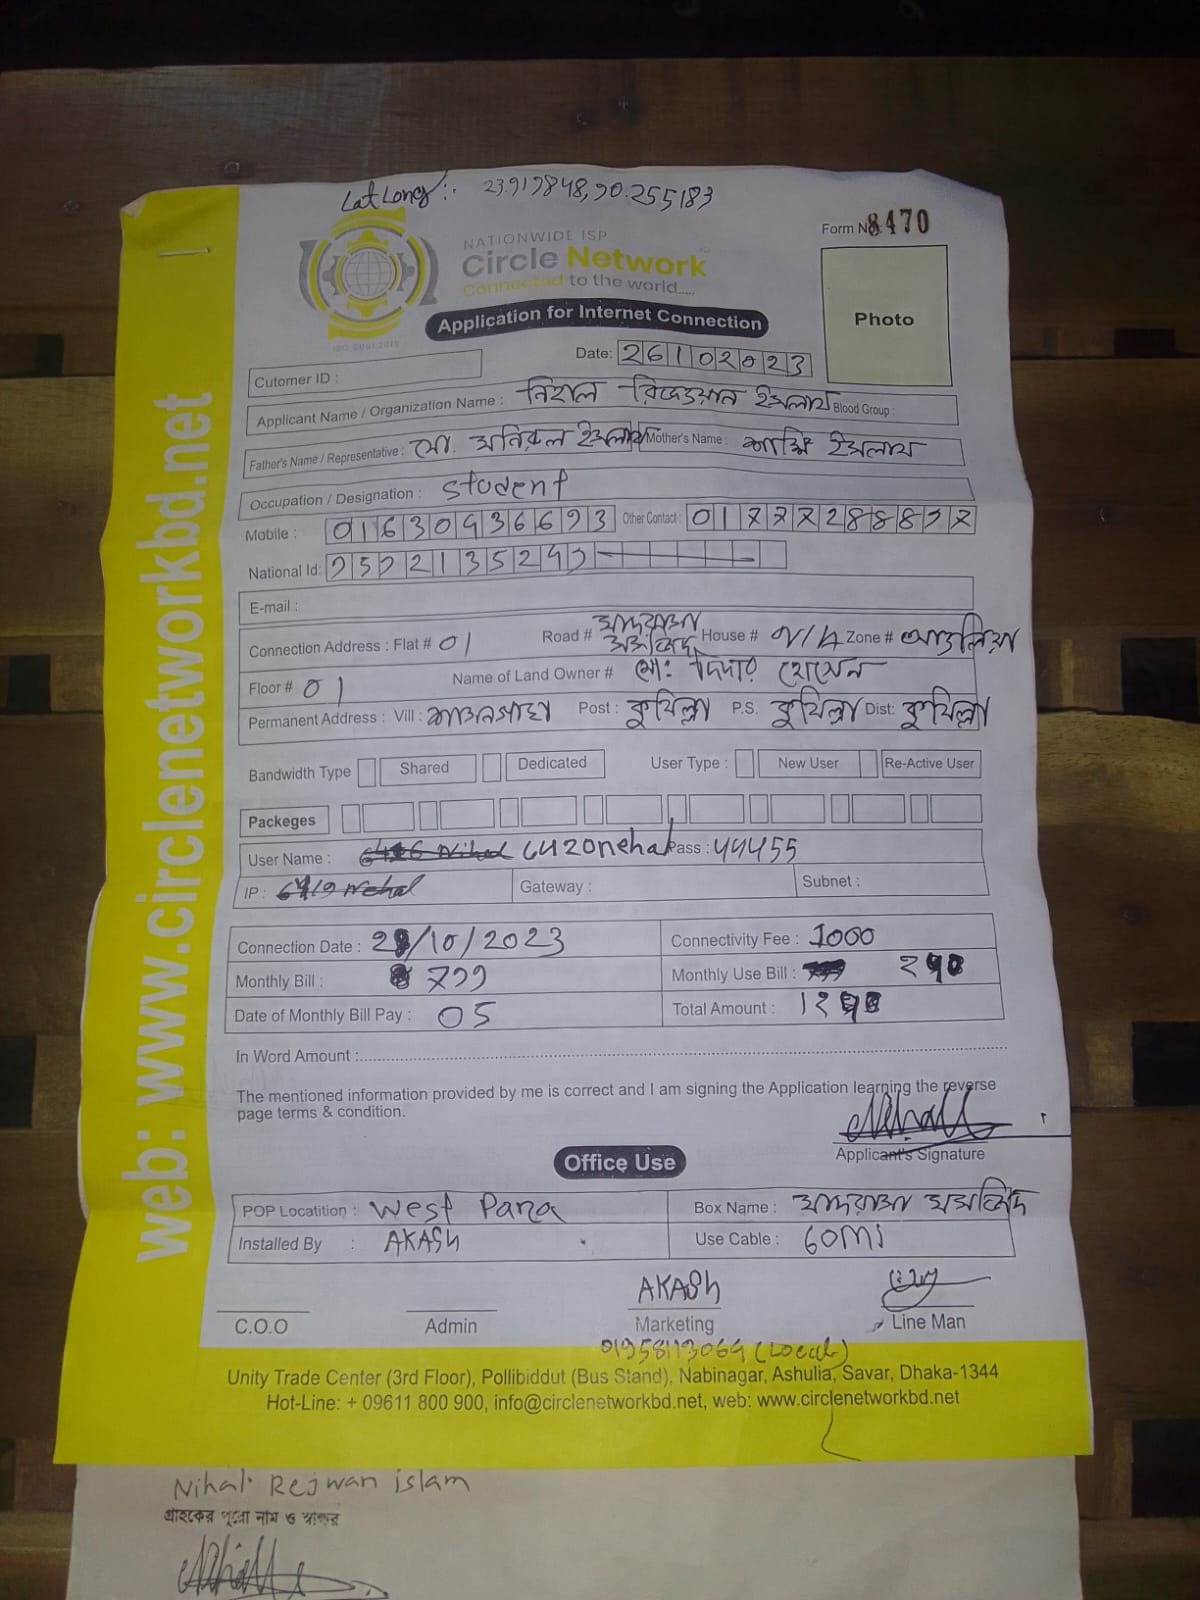 Lat Long :. 23.919848, 90.255183
Form No 8470
NATIONWIDE ISP
Circle Network
Connected to the world.....
ISO 9001:2015
Photo
Application for Internet Connection
Date: 26102023
Cutomer ID :
Applicant Name / Organization Name : নিহাল রিজওয়ান ইসলাম Blood Group :
Father's Name / Representative : মো. মনিরুল ইসলাম Mother's Name : ইসলাম
Occupation / Designation : Student
Mobile : Other Contact :
National Id:
E-mail :
Connection Address : Flat # 01 Road # মাদরাসা মসজিদ House # N/A Zone #
Floor # 01 Name of Land Owner # মো: দিদার হোসেন
Permanent Address : Vill : Post : কুমিল্লা P.S. কুমিল্লা Dist: কুমিল্লা
Bandwidth Type Shared Dedicated User Type : New User Re-Active User
Packeges
User Name : 6420nehal Pass : 44455
IP : Gateway : Subnet :
Connection Date : /10/2023 Connectivity Fee : 1000
Monthly Bill : 799 Monthly Use Bill :
Date of Monthly Bill Pay : 05 Total Amount :
In Word Amount :
The mentioned information provided by me is correct and I am signing the Application learning the reverse
page terms & condition.
Applicant's Signature
Office Use
POP Locatition : West Para Box Name : মাদরাসা মসজিদ
Installed By : AKASH Use Cable : 60Mi
AKASH
C.O.O Admin Marketing Line Man
01958113069 (Local)
Unity Trade Center (3rd Floor), Pollibiddut (Bus Stand), Nabinagar, Ashulia, Savar, Dhaka-1344
Hot-Line: + 09611 800 900, info@circlenetworkbd.net, web: www.circlenetworkbd.net
web: www.circlenetworkbd.net
Nihal Rejwan islam
গ্রাহকের পুরো নাম ও স্বাক্ষর